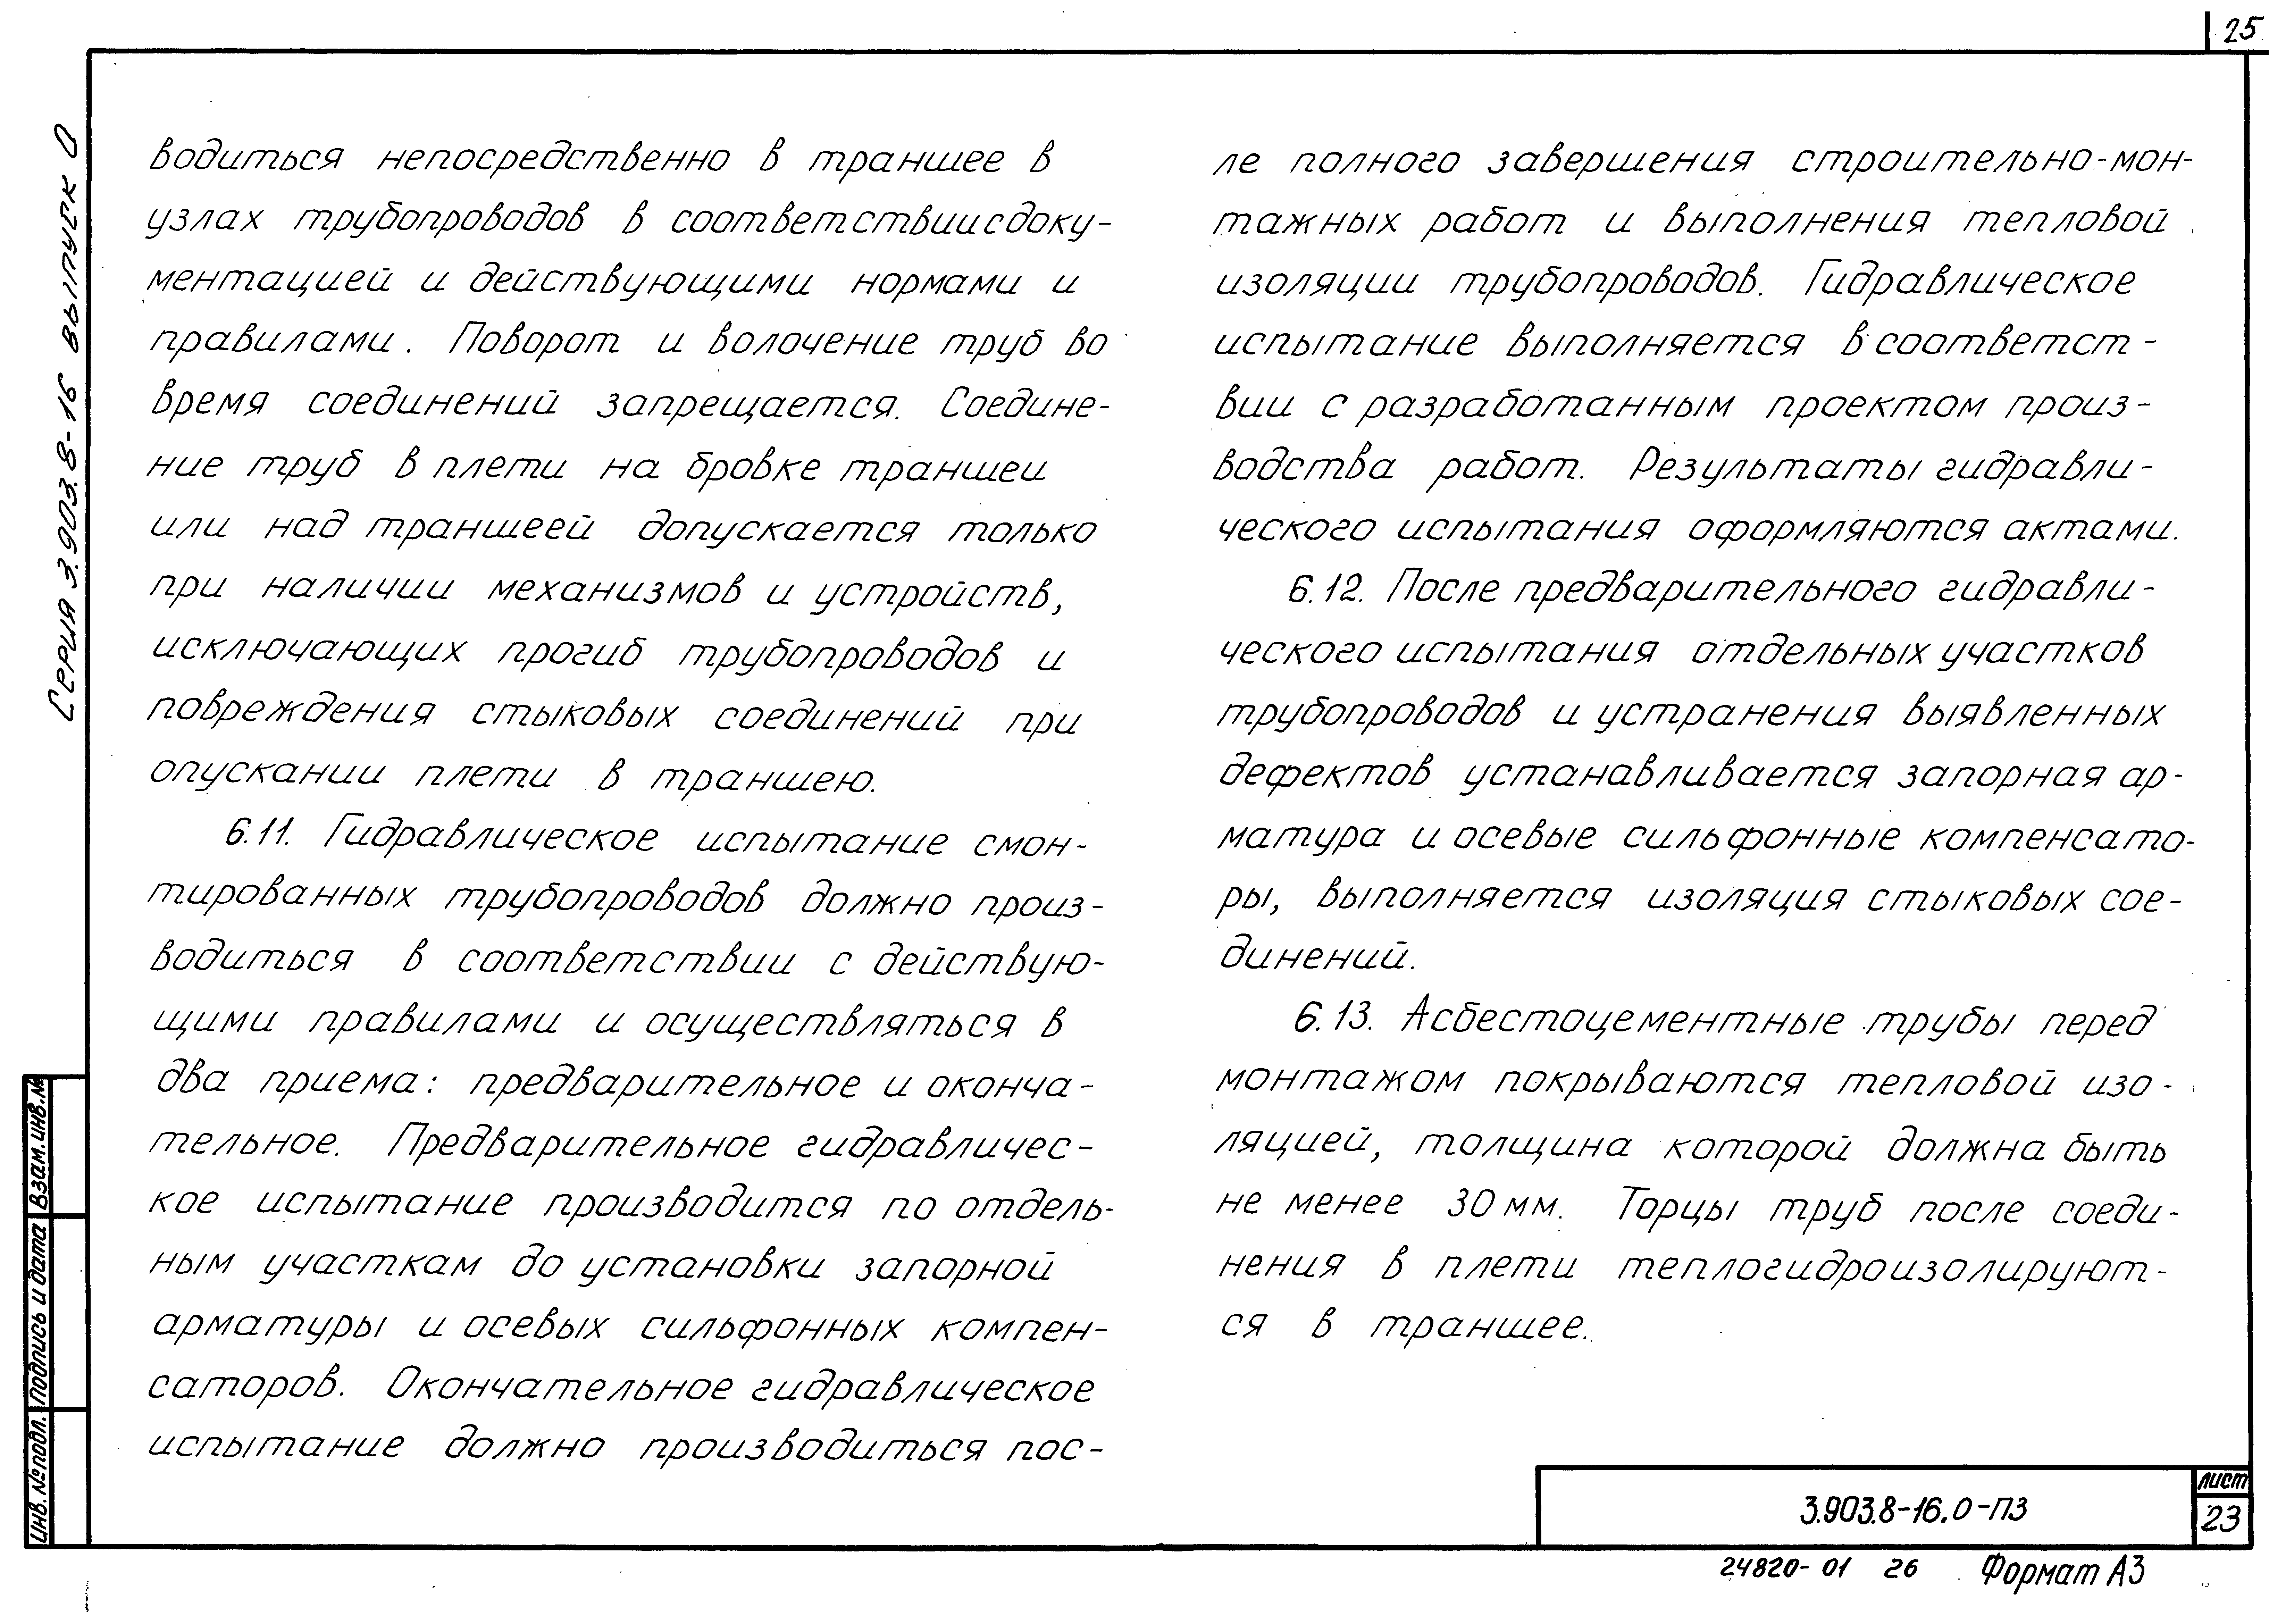 25
Серия 3.903.8-16 выпуск 0
водиться непосредственно в траншее в
узлах трубопроводов в соответствии с доку-
ментацией и действующими нормами и
правилами. Поворот и волочение труб во
время соединений запрещается. Соедине-
ние труб в плети на бровке траншеи
или над траншеей допускается только
при наличии механизмов и устройств,
исключающих прогиб трубопроводов и
повреждения стыковых соединений при
опускании плети в траншею.
6.11. Гидравлическое испытание смон-
тированных трубопроводов должно произ-
водиться в соответствии с действую-
щими правилами и осуществляться в
два приема: предварительное и оконча-
тельное. Предварительное гидравличес-
кое испытание производится по отдель-
ным участкам до установки запорной
арматуры и осевых сильфонных компен-
саторов. Окончательное гидравлическое
испытание должно производиться пос-
ле полного завершения строительно-мон-
тажных работ и выполнения тепловой
изоляции трубопроводов. Гидравлическое
испытание выполняется в соответст-
вии с разработанным проектом произ-
водства работ. Результаты гидравли-
ческого испытания оформляются актами.
6.12. После предварительного гидравли-
ческого испытания отдельных участков
трубопроводов и устранения выявленных
дефектов устанавливается запорная ар-
матура и осевые сильфонные компенсато-
ры, выполняется изоляция стыковых сое-
динений.
6.13. Асбестоцементные трубы перед
монтажом покрываются тепловой изо-
ляцией, толщина которой должна быть
не менее 30 мм. Торцы труб после соеди-
нения в плети теплогидроизолируют-
ся в траншее.
Инв. № подл. Подпись и дата Взам. инв. №
3.903.8-16.0-ПЗ
лист
23
24820-01 26 Формат А3